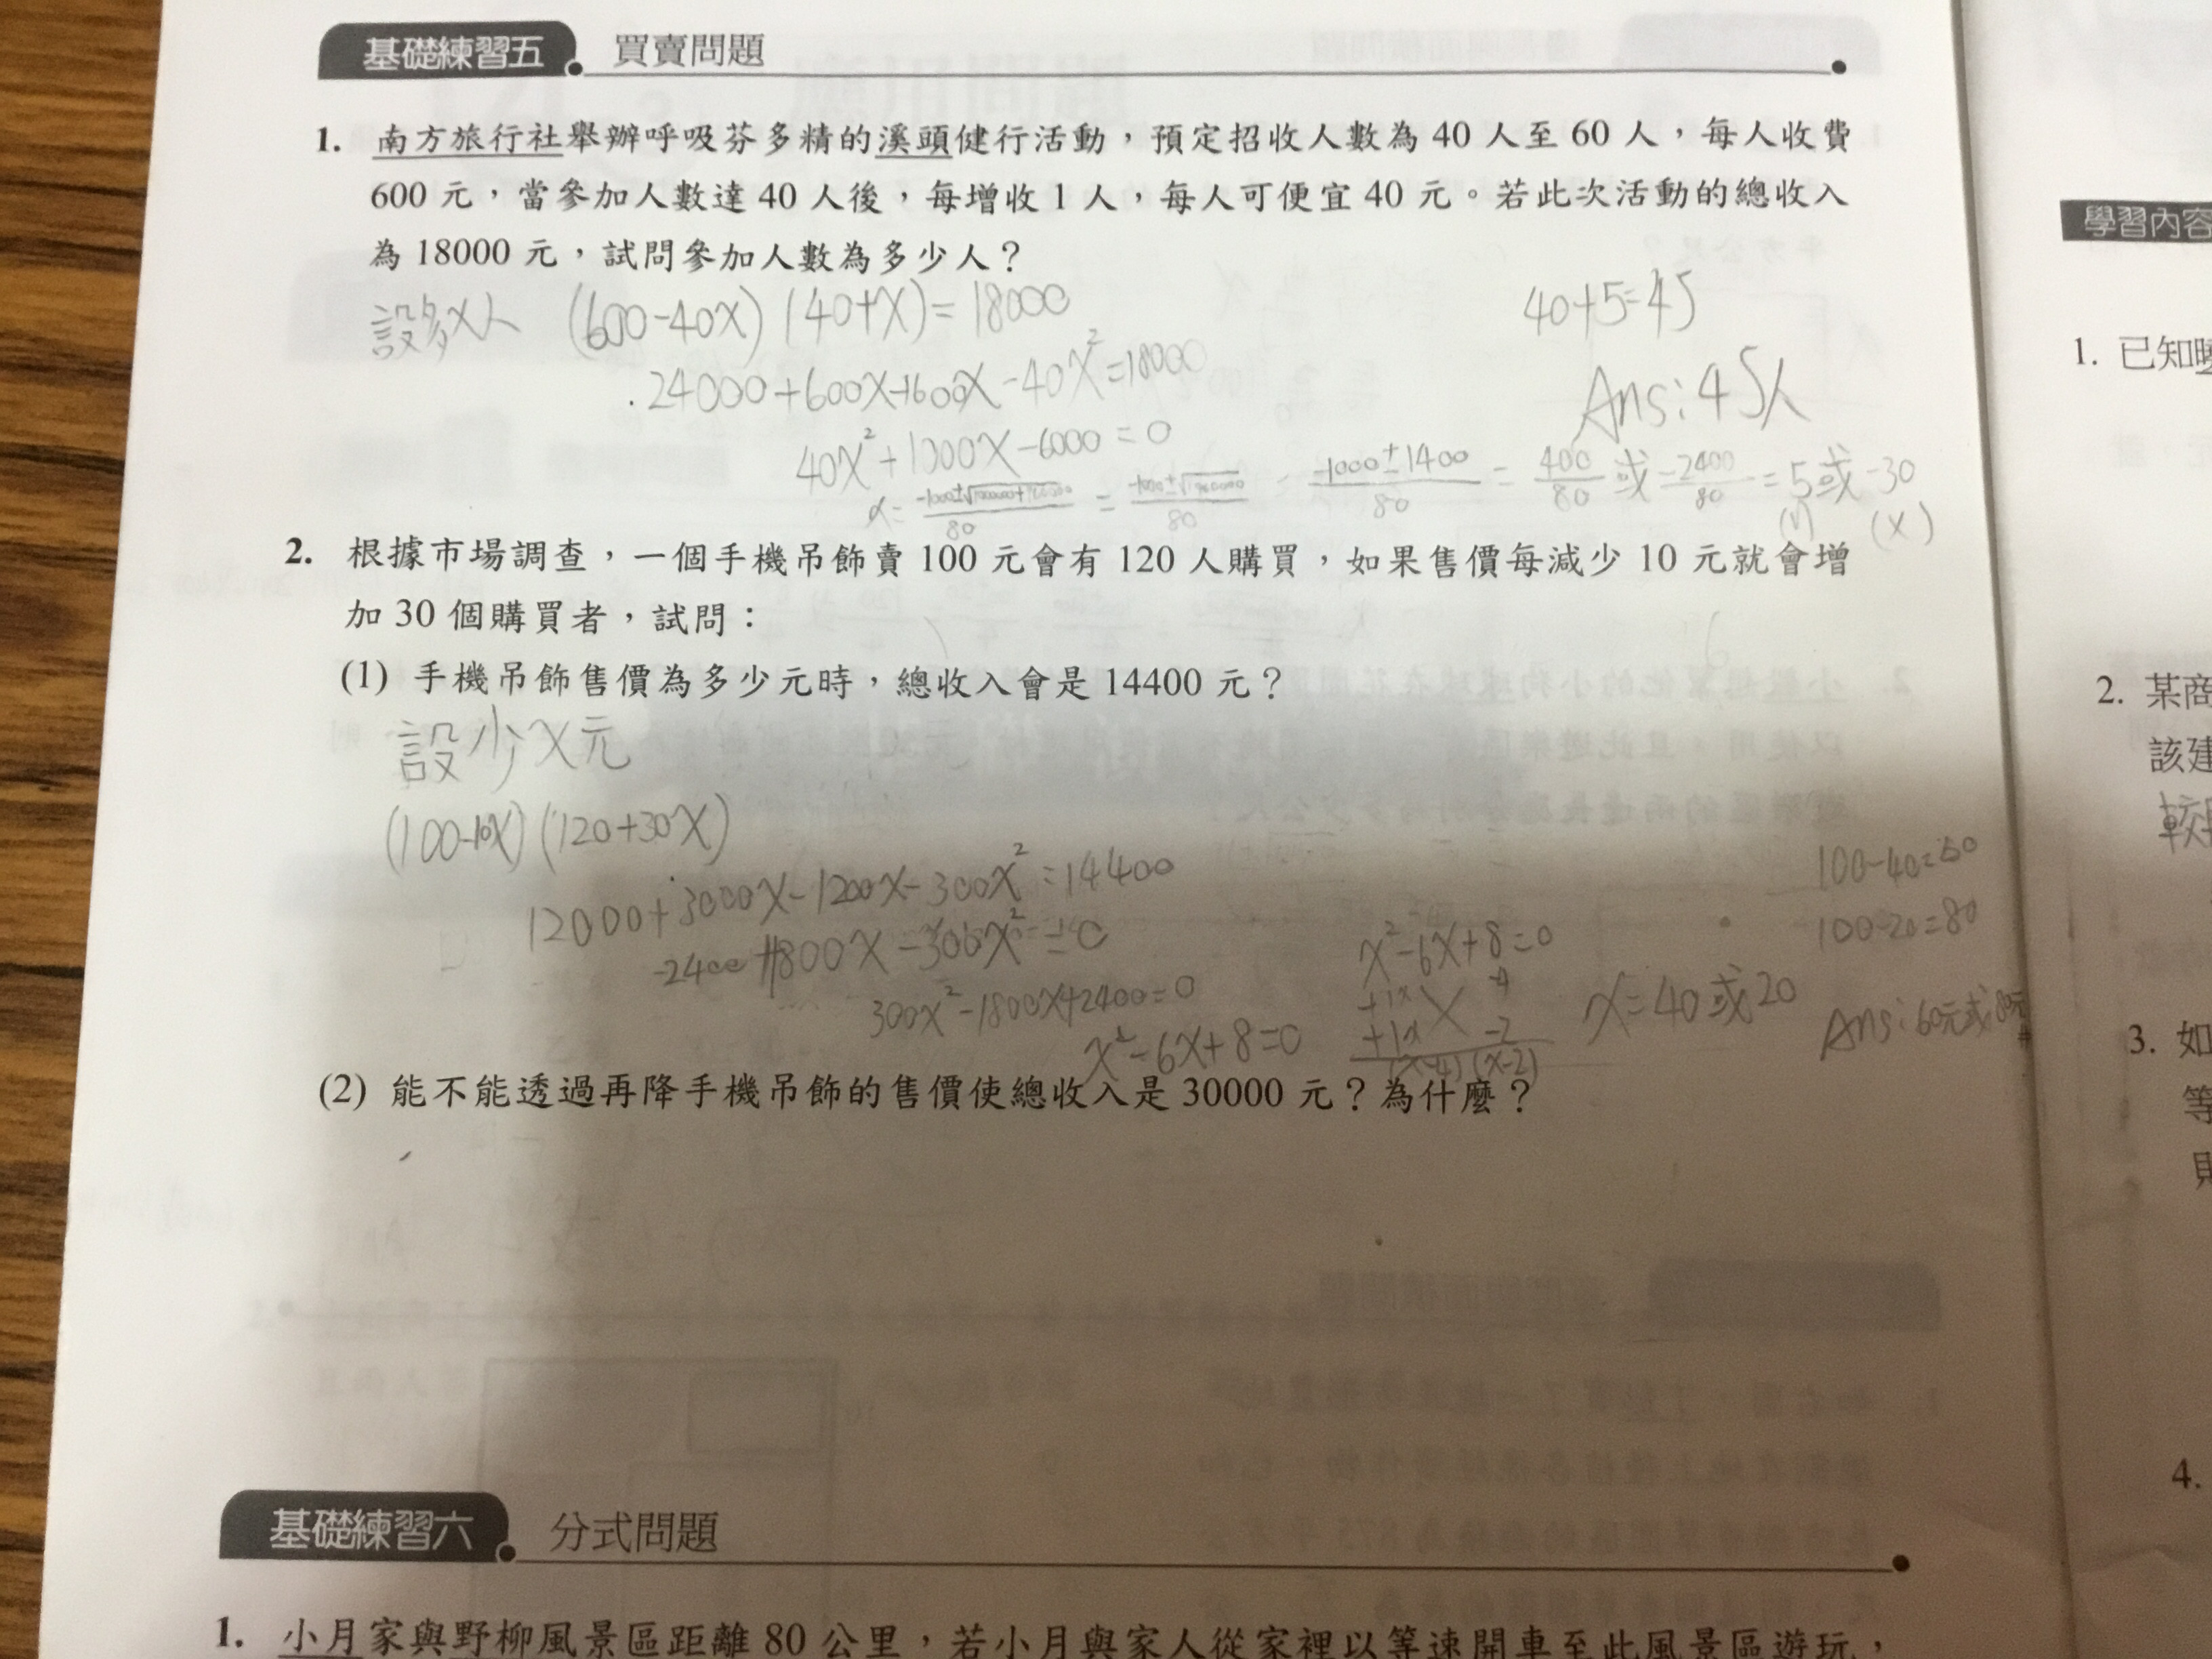 基礎練習五 買賣問題
1. 南方旅行社舉辦呼吸芬多精的溪頭健行活動，預定招收人數為 40 人至 60 人，每人收費
600 元，當參加人數達 40 人後，每增收 1 人，每人可便宜 40 元。若此次活動的總收入
為 18000 元，試問參加人數為多少人？
設多x人 (600-40x)(40+x)=18000
24000+600x-1600x-40x²=18000
40x²+1000x-6000=0
-1000±1400/80 = 400/80 或 -2400/80 = 5或-30
(√) (×)
40+5=45
Ans:45人
2. 根據市場調查，一個手機吊飾賣 100 元會有 120 人購買，如果售價每減少 10 元就會增
加 30 個購買者，試問：
(1) 手機吊飾售價為多少元時，總收入會是 14400 元？
設少x元
(100-10x)(120+30x)
12000+3000x-1200x-300x²=14400
-2400+1800x-300x²=0
300x²-1800x+2400=0
x²-6x+8=0
x²-6x+8=0
+1x -4
+1x -2
(x-4)(x-2)
x=40或20
100-40=60
100-20=80
Ans:60元或80元
(2) 能不能透過再降手機吊飾的售價使總收入是 30000 元？為什麼？
基礎練習六 分式問題
1. 小月家與野柳風景區距離 80 公里，若小月與家人從家裡以等速開車至此風景區遊玩，
學習內容
1. 已知
2. 某商
該建
3. 如
等
則
4.